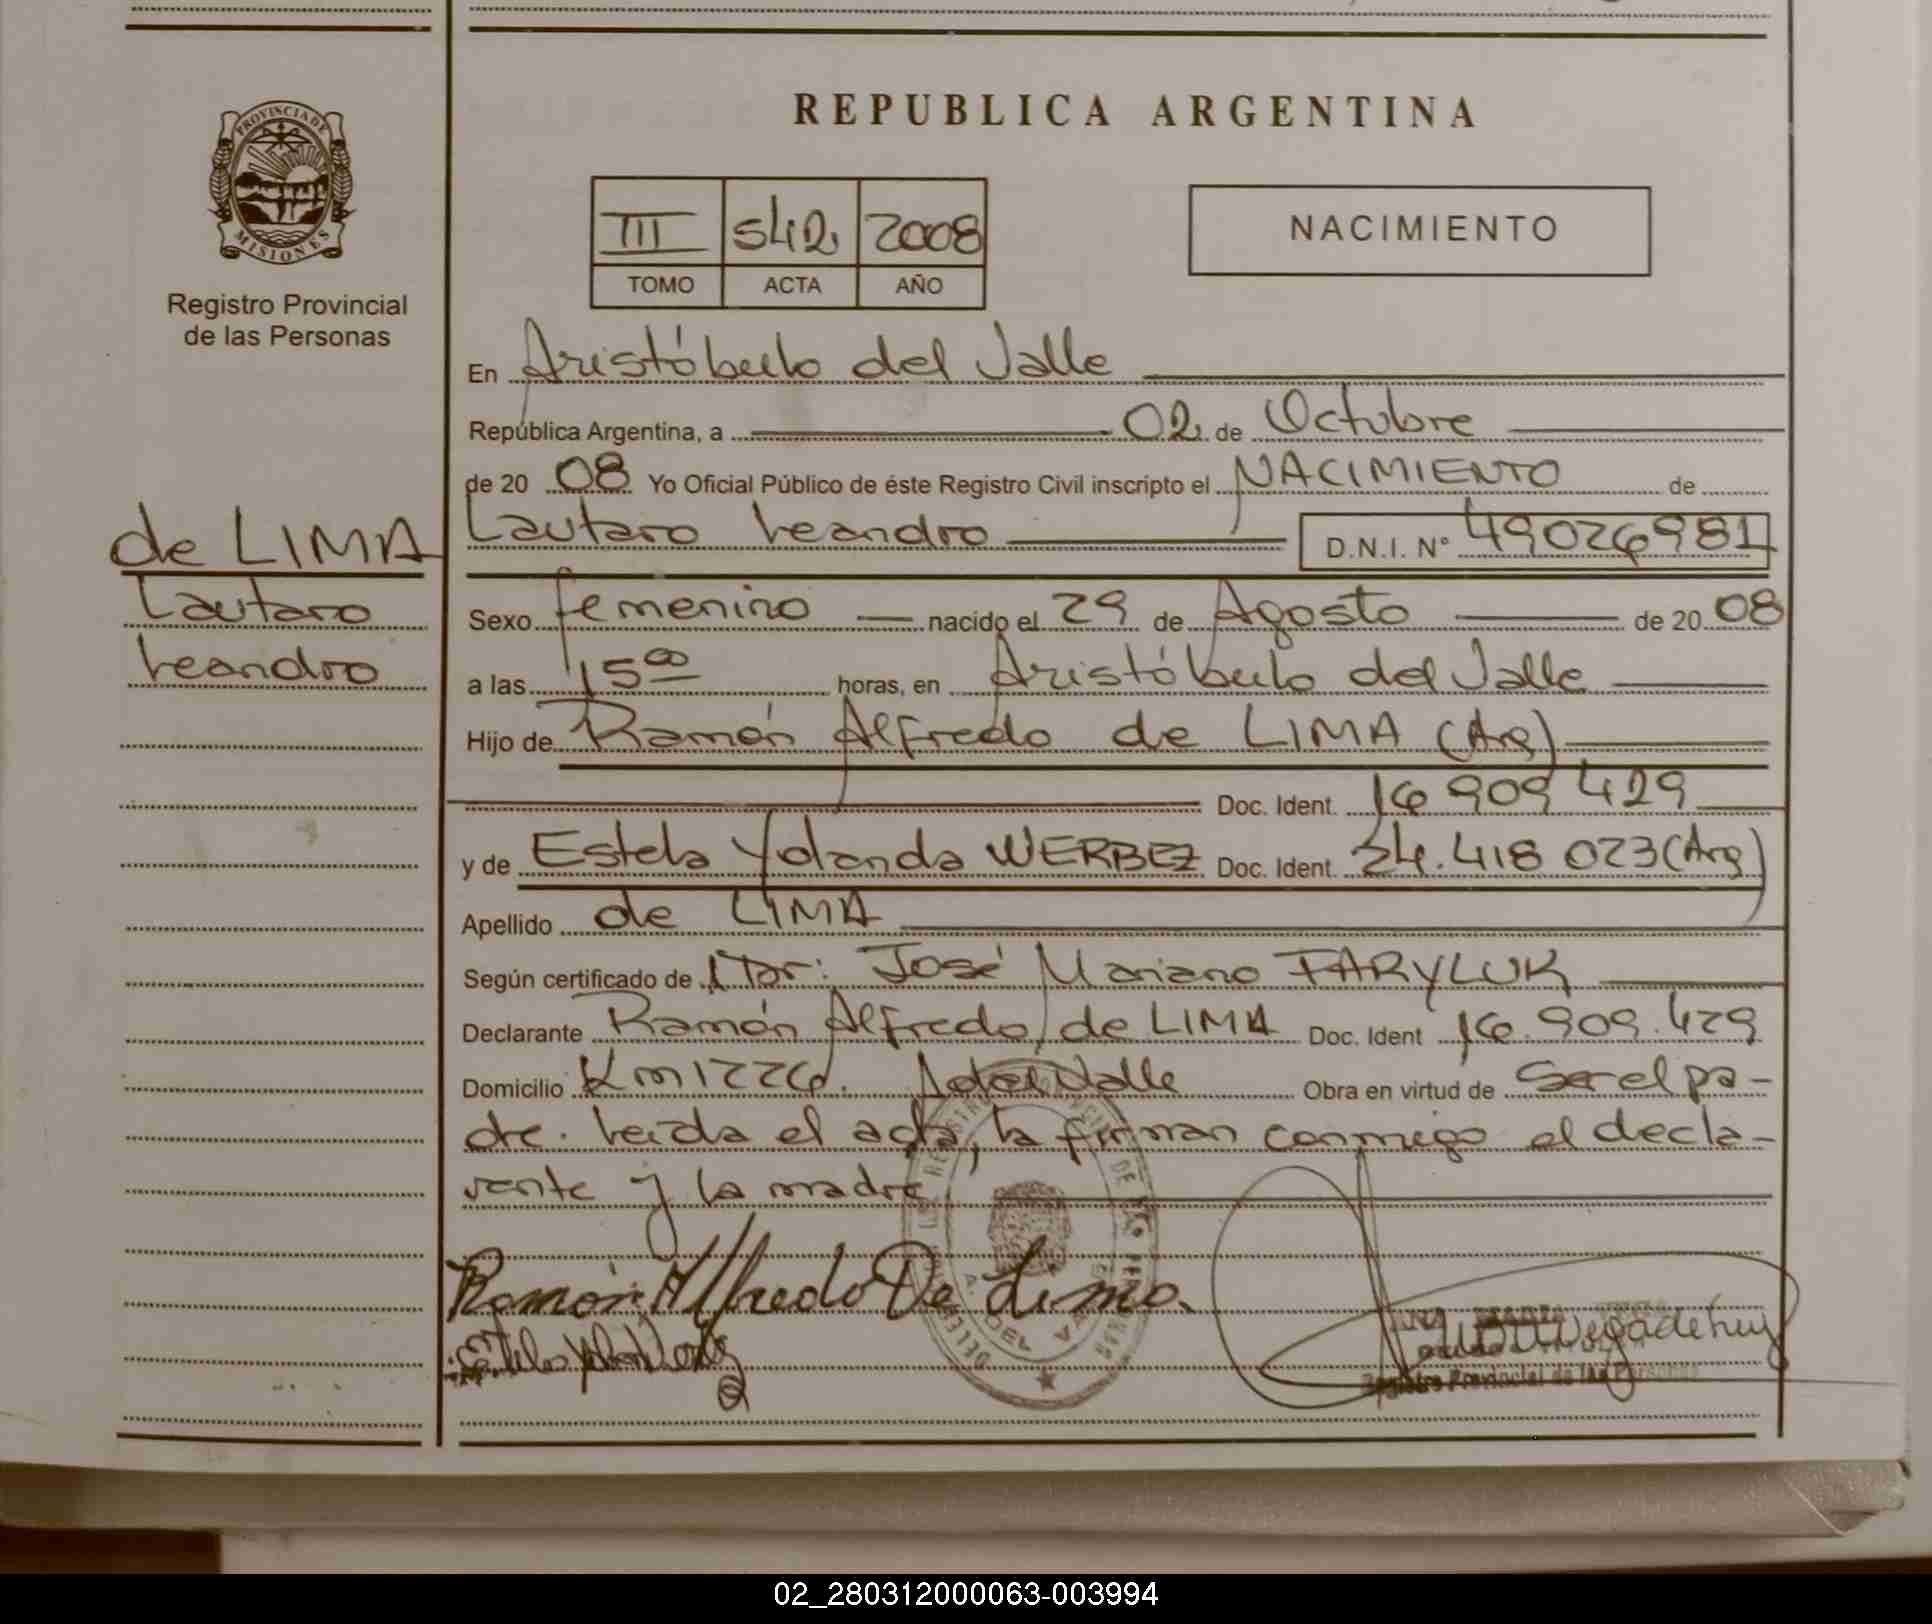 REPUBLICA ARGENTINA
PROVINCIA DE
MISIONES
Registro Provincial
de las Personas
III 542 2008
TOMO ACTA AÑO
NACIMIENTO
En Aristóbulo del Valle
República Argentina, a 02 de Octubre
de 20 08 Yo Oficial Público de éste Registro Civil inscripto el NACIMIENTO de
Lautaro Leandro D.N.I. Nº 49026981
de LIMA
Lautaro
Leandro
Sexo femenino nacido el 29 de Agosto de 20 08
a las 15 00 horas, en Aristóbulo del Valle
Hijo de Ramón Alfredo de LIMA (Arg)
Doc. Ident. 16 909 429
y de Estela Yolanda WERBEZ Doc. Ident. 34.418 023 (Arg)
Apellido de LIMA
Según certificado de Dr: José Mariano FARYLUK
Declarante Ramón Alfredo de LIMA Doc. Ident 16.909.429
Domicilio Km 1226. A del Valle Obra en virtud de Ser el pa-
dre. Leída el acta, la firman conmigo el decla-
rante y la madre
Ramón Alfredo De Lima.
Registro Provincial de las Personas
02_280312000063-003994